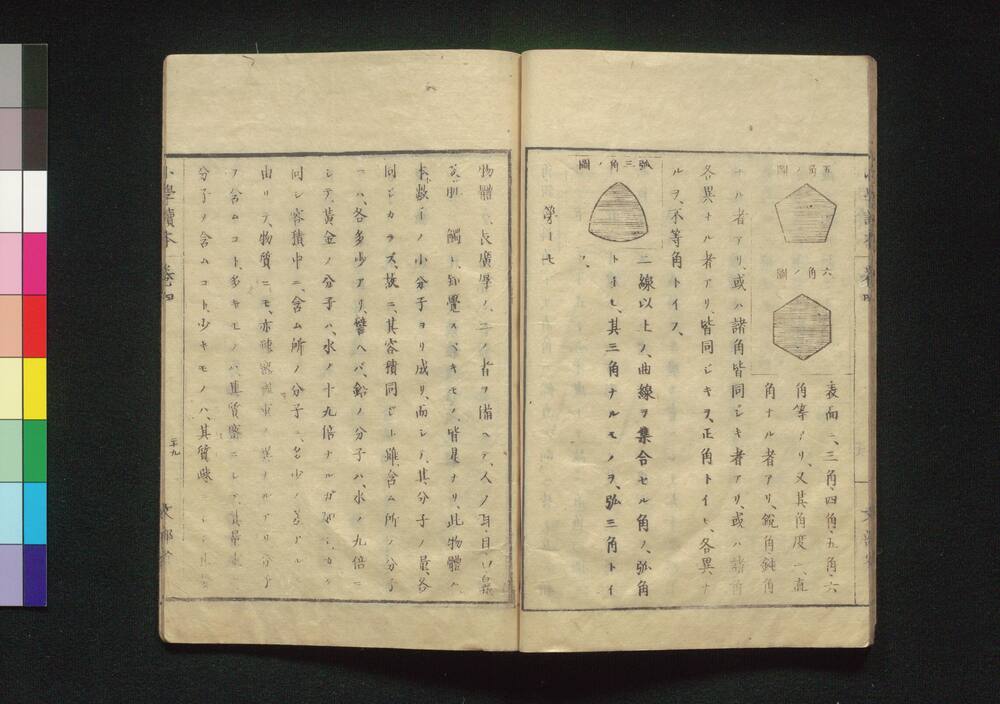 五角ノ圖
六角ノ圖
表面ニ、三角、四角、五角、六
角等アリ、又其角度ニ、直
角ナル者アリ、鋭角鈍角
ナル者アリ、或ハ諸角皆同ジキ者アリ、或ハ諸角
各異ナル者アリ、皆同ジキヲ、正角トイヒ、各異ナ
ルヲ、不等角トイフ、
弧三角ノ圖
二線以上ノ、曲線ヲ集合セル角ノ、弧角
トイヒ、其三角ナルモノヲ、弧三角トイ
フ、
第一七
物體ハ、長廣厚ノ、三ノ者ヲ備ヘテ、人ノ耳、目、口、鼻
皮肌ニ觸レ、知覺スベキモノ、皆是ナリ、此物體ハ
本數多ノ小分子ヨリ成リ、而シテ、其分子ノ量、各
同ジカラズ、故ニ、其容積同ジト雖、含ム所ノ分子
ニハ、各多少アリ、譬ヘバ、鉛ノ分子ハ、水ノ九倍ニ
シテ、黄金ノ分子ハ、水ノ十九倍ナルガ如シ、カク
同シ容積中ニ、含ム所ノ分子ニ、多少ノ差アルニ
由リテ、物質ニモ、亦疎密輕重ノ異ナルアリ、分子
ヲ含ムコト、多キモノハ、其質密ニシテ、其量重
分子ノ含ムコト、少キモノハ、其質疎
小學讀本 卷四
三十九
文部省